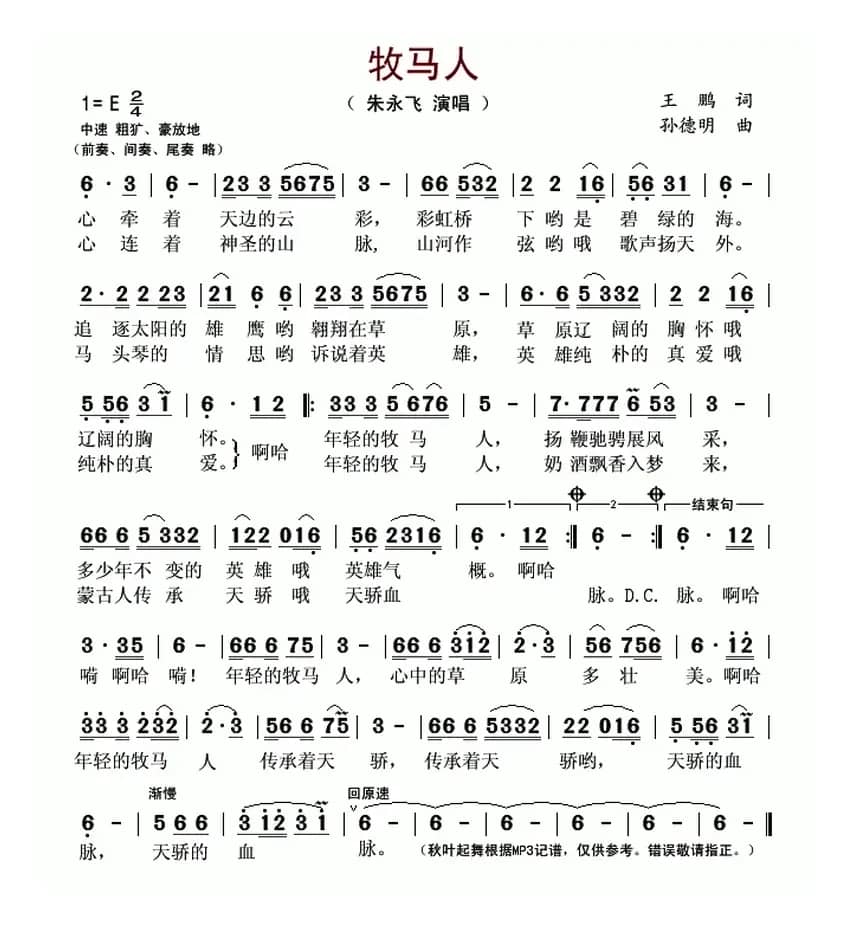 牧马人
1=E 2/4
（ 朱永飞 演唱 ）
王 鹏 词
孙德明 曲
中速 粗犷、豪放地
（前奏、间奏、尾奏 略）
6 · 3 | 6 - | 23 3 5675 | 3 - | 66 532 | 2 2 16 | 56 31 | 6 - |
心 牵 着 天边的云 彩， 彩虹桥 下 哟 是 碧 绿的 海。
心 连 着 神圣的山 脉， 山河作 弦 哟 哦 歌声扬天 外。
2 · 2 2 23 | 21 6 6 | 23 3 5675 | 3 - | 6 · 6 5 332 | 2 2 16 |
追 逐太阳的 雄 鹰 哟 翱翔在草 原， 草 原辽 阔的 胸 怀哦
马 头琴的 情 思 哟 诉说着英 雄， 英 雄纯 朴的 真 爱哦
5 56 3 1 | 6 · 12 |: 33 3 5 676 | 5 - | 7 · 777 6 53 | 3 - |
辽阔的胸 怀。 啊哈 年轻的牧 马 人， 扬 鞭驰骋展风 采，
纯朴的真 爱。 年轻的牧 马 人， 奶 酒飘香入梦 来，
1 2 结束句
66 6 5 332 | 122 016 | 56 2316 | 6 · 12 :| 6 - :| 6 · 12 |
多少年不 变的 英 雄 哦 英雄气 概。 啊哈
蒙古人传 承 天 骄 哦 天骄血 脉。D.C. 脉。 啊哈
3 · 35 | 6 - | 66 6 75 | 3 - | 66 6 312 | 2 · 3 | 56 756 | 6 · 12 |
嗬 啊哈 嗬！ 年轻的牧马 人， 心中的草 原 多 壮 美。啊哈
33 3 232 | 2 · 3 | 56 6 75 | 3 - | 66 6 5332 | 22 016 | 5 56 31 |
年轻的牧马 人 传承着天 骄， 传承着天 骄哟， 天骄的血
渐慢 回原速
6 - | 5 6 6 | 3 12 3 1 | 6 - | 6 - | 6 - | 6 - | 6 - ‖
脉， 天骄的 血 脉。 （秋叶起舞根据MP3记谱，仅供参考。错误敬请指正。）